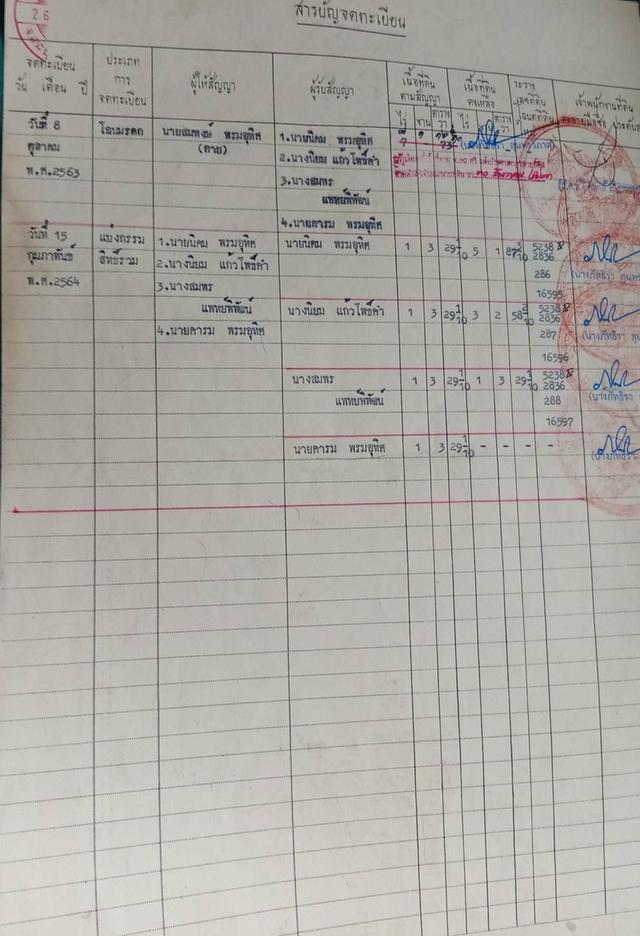 26
สารบัญจดทะเบียน
จดทะเบียน
วัน เดือน ปี
ประเภท
การ
จดทะเบียน
ผู้ให้สัญญา
ผู้รับสัญญา
เนื้อที่ดิน
ตามสัญญา
ไร่ งาน ตารางวา
เนื้อที่ดิน
คงเหลือ
ไร่ ตารางวา
ระวาง
เลขที่ดิน
โฉนดที่ดิน
เจ้าพนักงานที่ดิน
ลงลายมือชื่อ ประทับ
วันที่ 8
ตุลาคม
พ.ศ.2563
โอนมรดก
นายสมพงษ์ พรมอุทิศ
(ตาย)
1.นายนิคม พรมอุทิศ
2.นางนิยม แก้วโพธิ์คำ
3.นางสมพร
แพทย์พิพัฒน์
4.นายคารม พรมอุทิศ
วันที่ 15
กุมภาพันธ์
พ.ศ.2564
แบ่งกรรม
สิทธิ์รวม
1.นายนิคม พรมอุทิศ
2.นางนิยม แก้วโพธิ์คำ
3.นางสมพร
แพทย์พิพัฒน์
4.นายคารม พรมอุทิศ
นายนิคม พรมอุทิศ 1 3 29 1/10 5 1 87 5238 II
2836
286
16595
นางนิยม แก้วโพธิ์คำ 1 3 29 1/10 3 2 58 2/10 5238 II
2836
287
16596
นางสมพร 1 3 29 1/10 1 3 29 1/10 5238 II
แพทย์พิพัฒน์ 2836
288
16597
นายคารม พรมอุทิศ 1 3 29 1/10 - - - -
(นางภัทธิรา